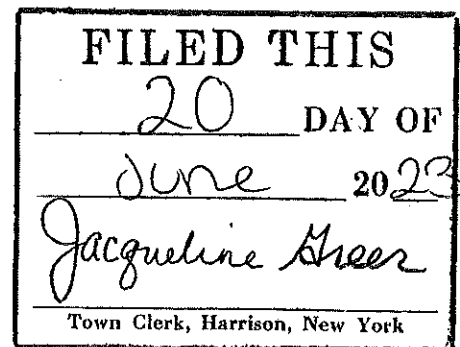 FILED THIS
20 DAY OF
June 2023
Jacqueline Greer
Town Clerk, Harrison, New York